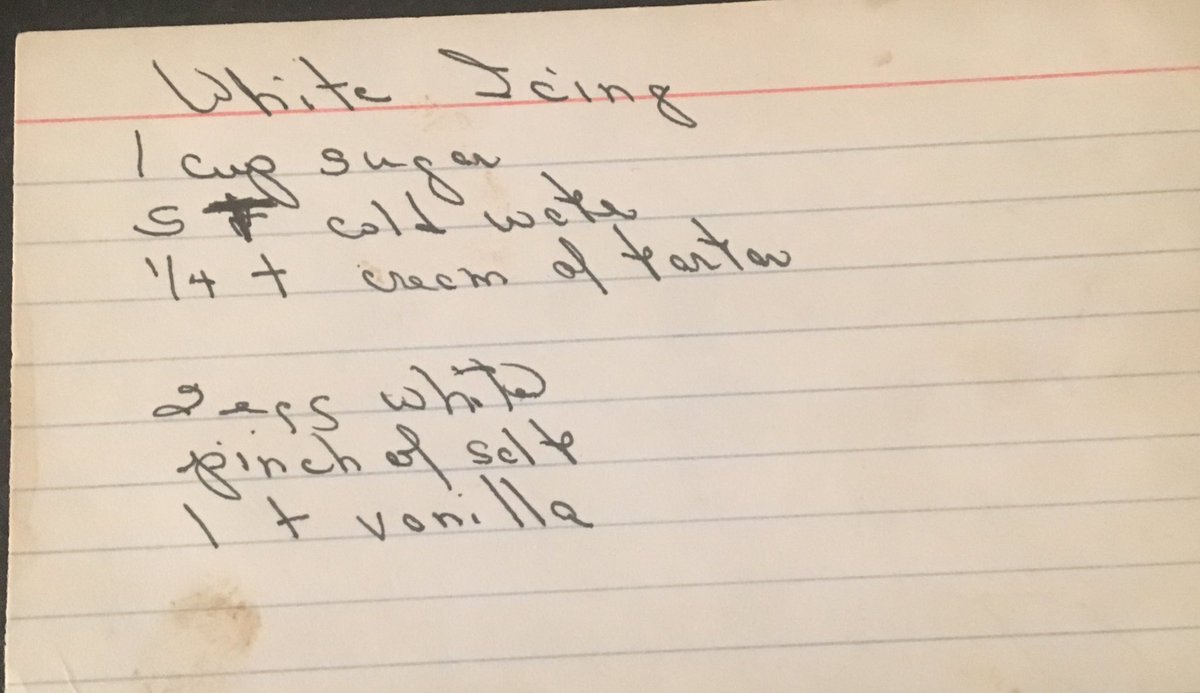 White Icing
1 cup sugar
5 T cold water
1/4 t cream of tartar
2 egg white
pinch of salt
1 t vanilla